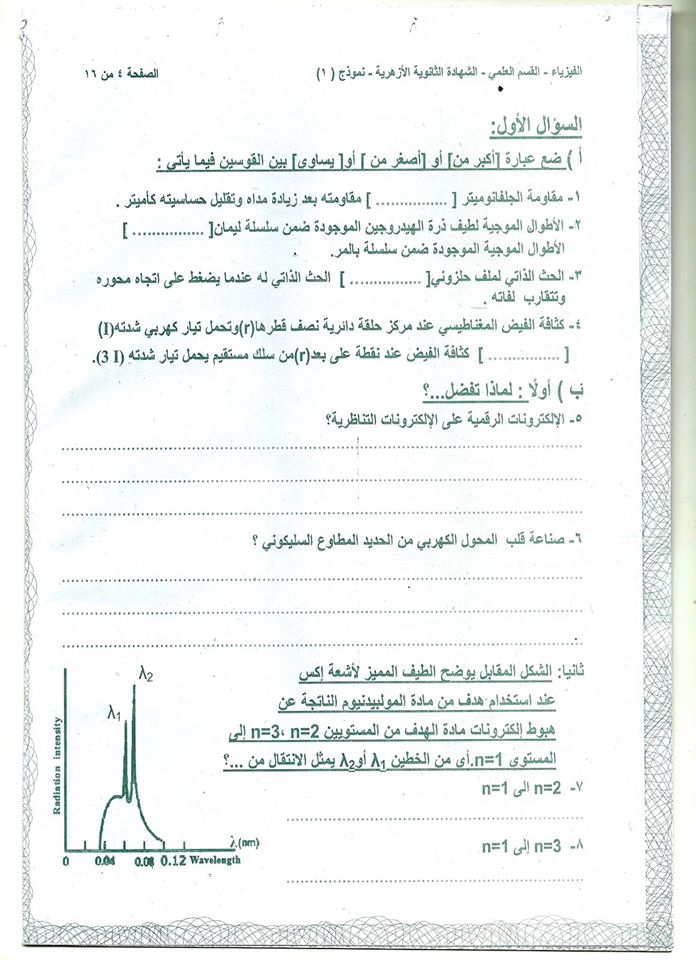 الفيزياء - القسم العلمي - الشهادة الثانوية الأزهرية - نموذج (١)
الصفحة ٤ من ١٦
السؤال الأول:
أ ) ضع عبارة [أكبر من] أو [أصغر من ] أو[ يساوى] بين القوسين فيما يأتي :
١- مقاومة الجلفانوميتر [ ................ ] مقاومته بعد زيادة مداه وتقليل حساسيته كأميتر .
٢- الأطوال الموجية لطيف ذرة الهيدروجين الموجودة ضمن سلسلة ليمان[ ................ ]
الأطوال الموجية الموجودة ضمن سلسلة بالمر.
٣- الحث الذاتي لملف حلزوني[ ................ ] الحث الذاتي له عندما يضغط على اتجاه محوره
وتتقارب لفاته .
٤- كثافة الفيض المغناطيسي عند مركز حلقة دائرية نصف قطرها(r)وتحمل تيار كهربي شدته(I)
[ ................ ] كثافة الفيض عند نقطة على بعد(r)من سلك مستقيم يحمل تيار شدته (3 I).
ب ) أولًا : لماذا تفضل...؟
٥- الإلكترونات الرقمية على الإلكترونات التناظرية؟
٦- صناعة قلب المحول الكهربي من الحديد المطاوع السليكوني ؟
ثانيا: الشكل المقابل يوضح الطيف المميز لأشعة إكس
عند استخدام هدف من مادة الموليبدنيوم الناتجة عن
هبوط إلكترونات مادة الهدف من المستويين n=3، n=2 إلى
المستوى n=1.أي من الخطين λ1 أوλ2 يمثل الانتقال من ...؟
٧- n=2 الى n=1
٨- n=3 إلى n=1
λ2
λ1
Radiation intensity
λ(nm)
0 0.04 0.08 0.12 Wavelength